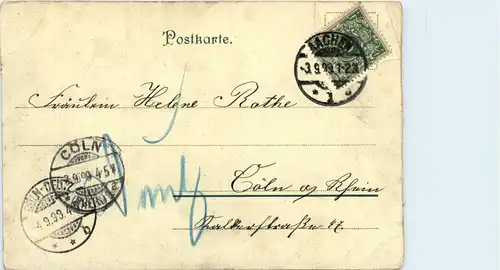 Postkarte.
AACHEN
3.9.99.1-2N
1
Fräulein Helene Rothe
CÖLN
3.9.99.4-5N
CÖLN-DEUTZ
4.9.99.
b
Deutz
Cöln a/ Rhein
Kalkerstraße 47.